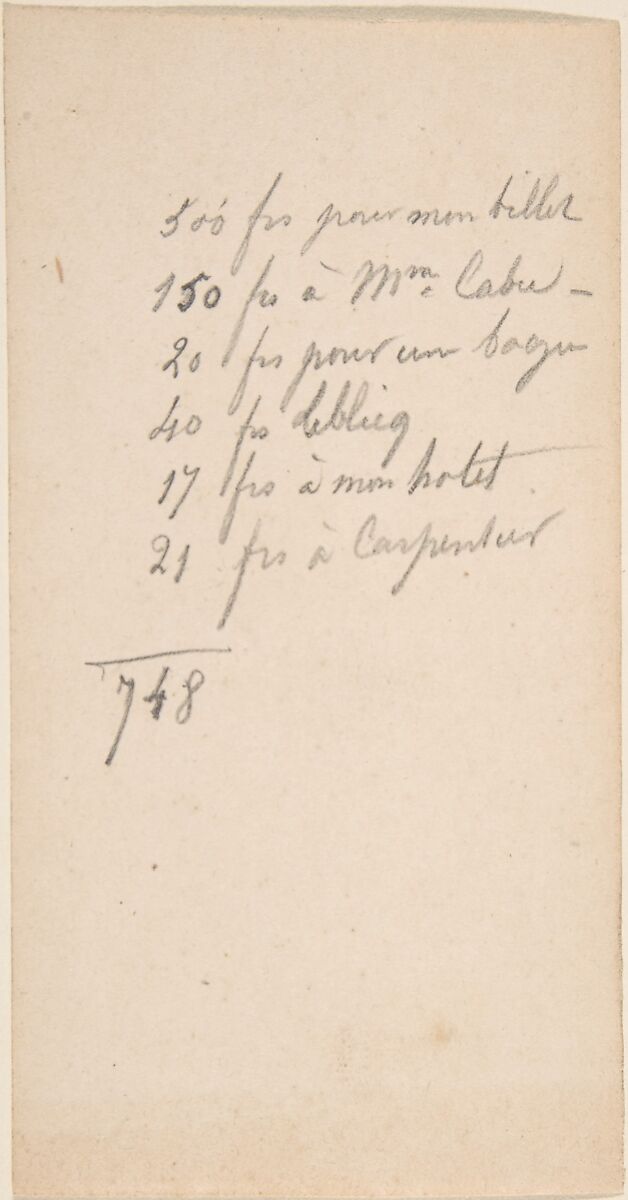 500 frs pour mon billet
150 frs à Mme Cabu –
20 frs pour un
40 frs Leblicq
17 frs à mon hotel
21 frs à Carpentier
748